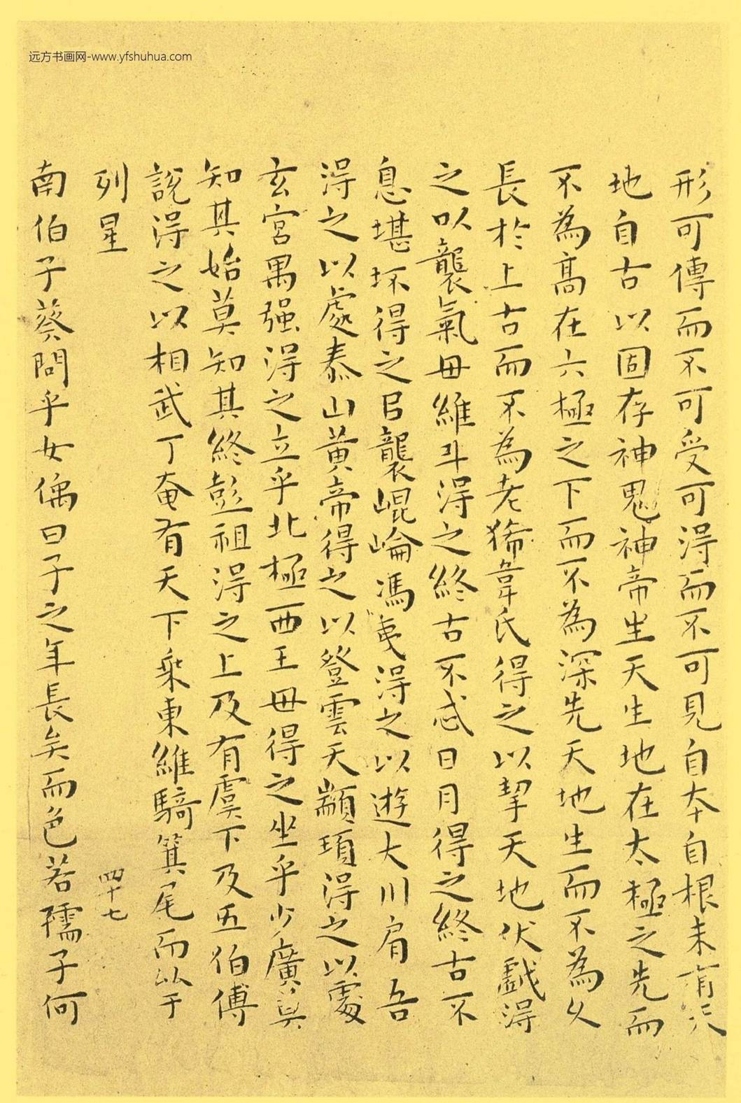 远方书画网-www.yfshuhua.com
形可傳而不可受可得而不可見自本自根未有天
地自古以固存神鬼神帝生天生地在太極之先而
不為高在六極之下而不為深先天地生而不為久
長於上古而不為老狶韋氏得之以挈天地伏戲得
之以襲氣毋維斗得之終古不忒日月得之終古不
息堪坏得之以襲崐崘馮夷得之以遊大川肩吾
得之以處泰山黃帝得之以登雲天顓頊得之以處
玄宮禺强得之立乎北極西王毋得之坐乎少廣莫
知其始莫知其終彭祖得之上及有虞下及五伯傅
說得之以相武丁奄有天下乘東維騎箕尾而以于
列星
四十七
南伯子葵問乎女偊曰子之年長矣而色若孺子何